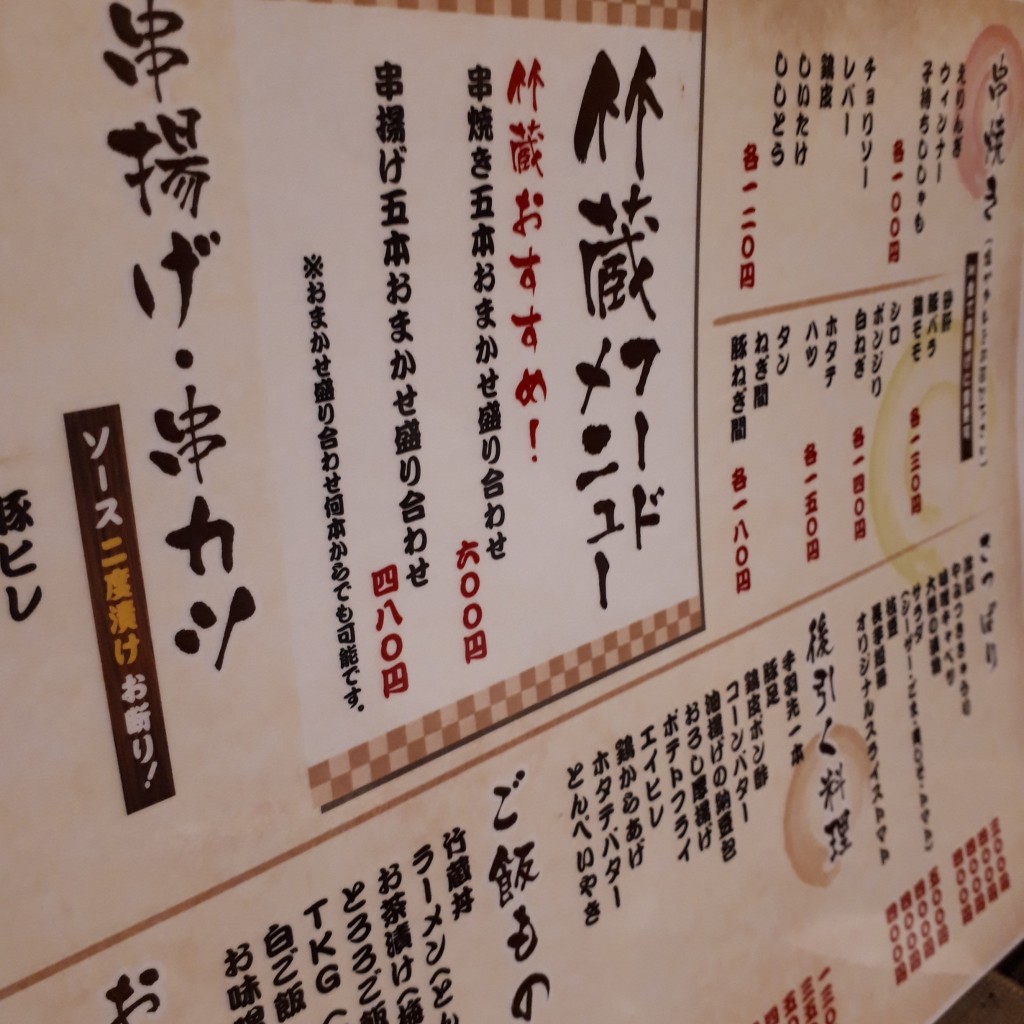 串焼き
えりんぎ
ウィンナー
子持ちししゃも
各一〇〇円
チョリソー
レバー
鶏皮
しいたけ
ししとう
各一二〇円
砂肝
豚バラ
鶏モモ
各一三〇円
シロ
ボンジリ
白ねぎ
各一四〇円
ホタテ
ハツ
各一五〇円
タン
ねぎ間
豚ねぎ間
各一八〇円
さっぱり
サラダ
枝豆
長芋短冊
オリジナルスライストマト
後引く料理
手羽先一本
豚足
鶏皮ポン酢
コーンバター
油揚げの納豆包
おろし厚揚げ
ポテトフライ
エイヒレ
鶏からあげ
ホタテバター
とんぺいやき
竹蔵フードメニュー
竹蔵おすすめ!
串焼き五本おまかせ盛り合わせ
六〇〇円
串揚げ五本おまかせ盛り合わせ
四八〇円
※おまかせ盛り合わせ何本からでも可能です。
ご飯もの
竹蔵丼
ラーメン(とん
お茶漬け(梅
とろろご飯
TKG(
白ご飯
お味噌
串揚げ・串カツ
ソース二度漬けお断り!
豚ヒレ
お